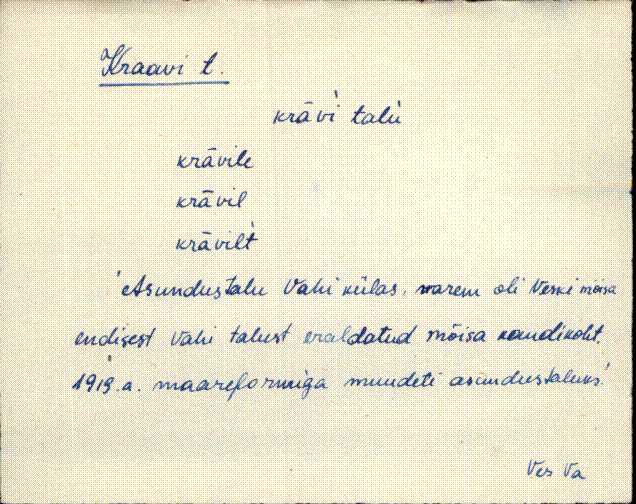 Kraavi t.
krāvì talù
krāvile
krāvil
krāvilt̀
'Asundustalu Vahi külas, varem oli Veski mõisa
endisest Vahi talust eraldatud mõisa kandikoht.
1919.a. maareformiga muudeti asundustaluks.'
Ves Va